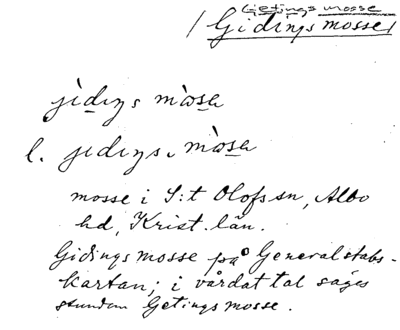 Getings mosse
/Gidings mosse/
jìdiŋs mòsa
l. jidiŋs, mòsa
mosse i S:t Olofs sn, Albo
hd, Krist. län.
Gidings mosse på Generalstabs-
kartan; i vårdat tal säges
stundom Getings mosse.